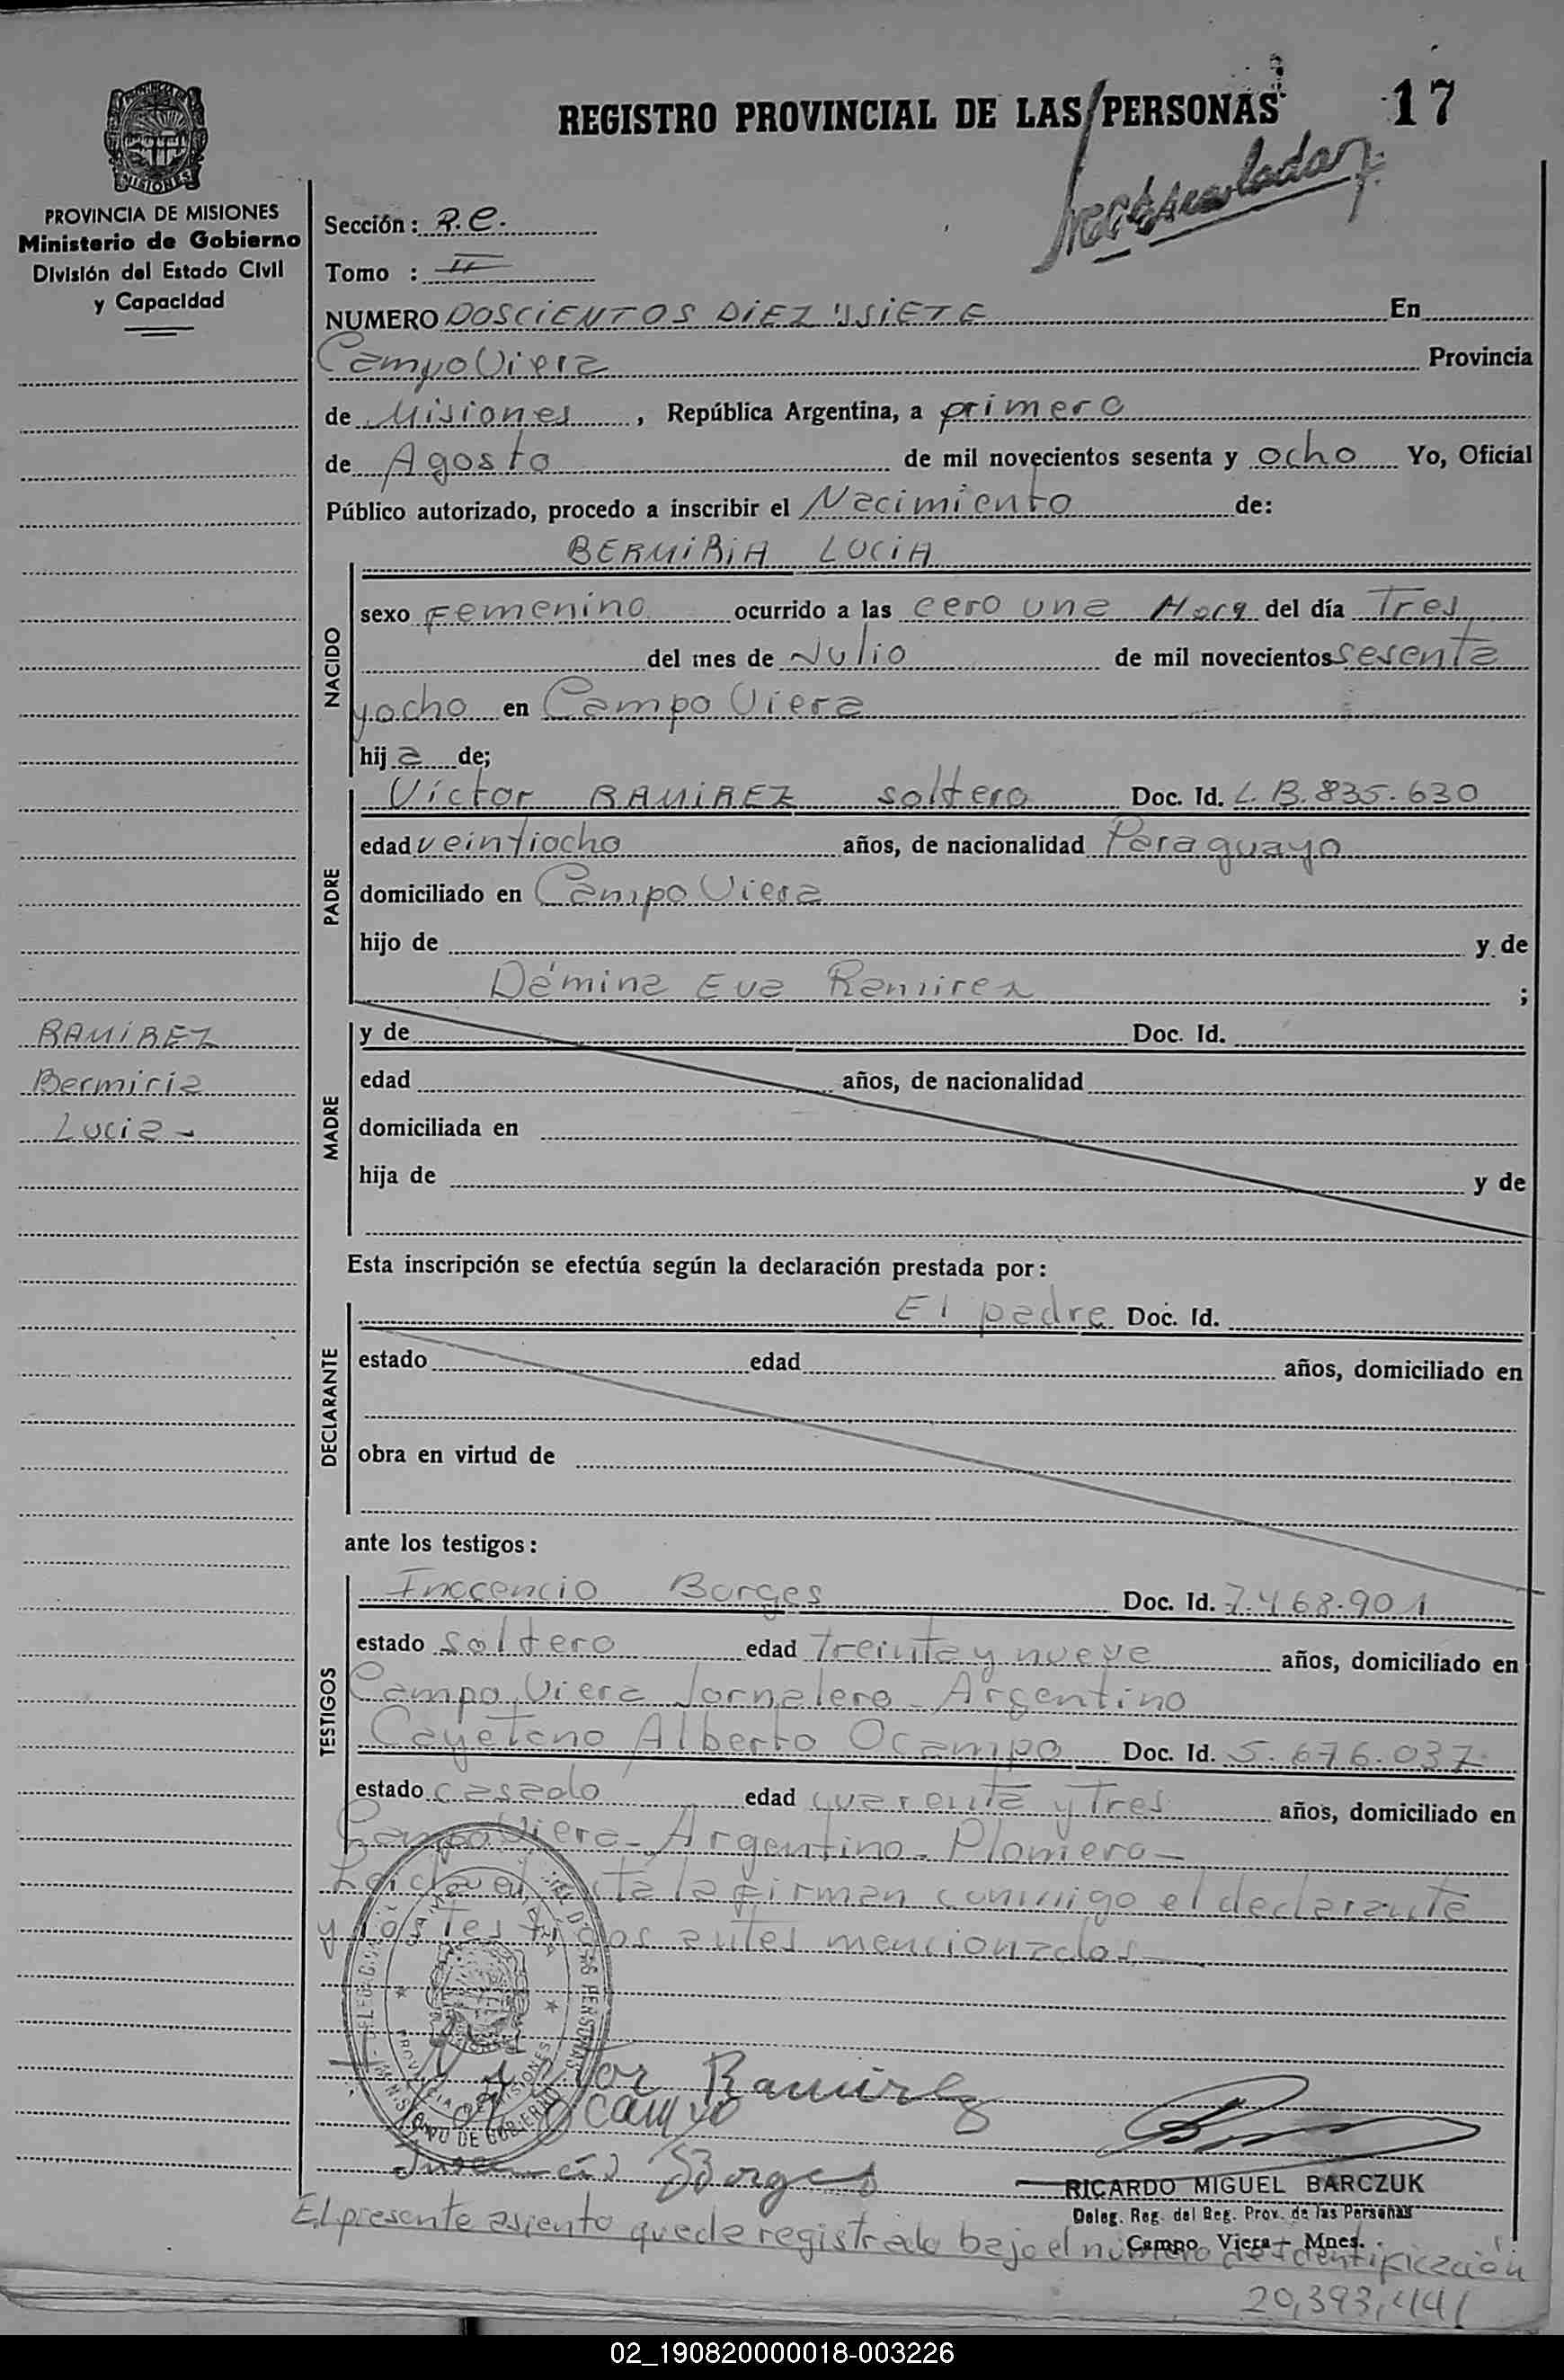 REGISTRO PROVINCIAL DE LAS PERSONAS 17
MISIONES
PROVINCIA DE MISIONES
Ministerio de Gobierno
División del Estado Civil
y Capacidad
RAMIREZ
Bermiria
Lucia -
Sección: R.C.
Tomo : II
NUMERO DOSCIENTOS DIEZ YSIETE En
Campo Viera Provincia
de Misiones, República Argentina, a primero
de Agosto de mil novecientos sesenta y ocho Yo, Oficial
Público autorizado, procedo a inscribir el Nacimiento de:
BERMIRIA LUCIA
NACIDO
sexo Femenino ocurrido a las cero una Hora del día Tres
del mes de Julio de mil novecientos sesenta
yocho en Campo Viera
hija de;
PADRE
Víctor RAMIREZ soltero Doc. Id. L.B.835.630
edad veintiocho años, de nacionalidad Paraguayo
domiciliado en Campo Viera
hijo de y de
Dámina Eva Ramirez ;
MADRE
y de Doc. Id.
edad años, de nacionalidad
domiciliada en
hija de y de
Esta inscripción se efectúa según la declaración prestada por:
DECLARANTE
El padre Doc. Id.
estado edad años, domiciliado en
obra en virtud de
ante los testigos:
TESTIGOS
Inocencio Borges Doc. Id. 7.468.901
estado soltero edad Treinta y nueve años, domiciliado en
Campo Viera Jornalero - Argentino
Cayetano Alberto Ocampo Doc. Id. 5.676.037
estado casado edad cuarenta y Tres años, domiciliado en
Campo Viera - Argentino - Plomero -
Leída el acta la firman conmigo el declarante
y los testigos antes mencionados
Victor Ramirez
Ocampo
Borges
RICARDO MIGUEL BARCZUK
Deleg. Reg. del Reg. Prov. de las Personas
Campo Viera - Mnes.
El presente asiento queda registrado bajo el número de Identificación
20,393,441
02_190820000018-003226